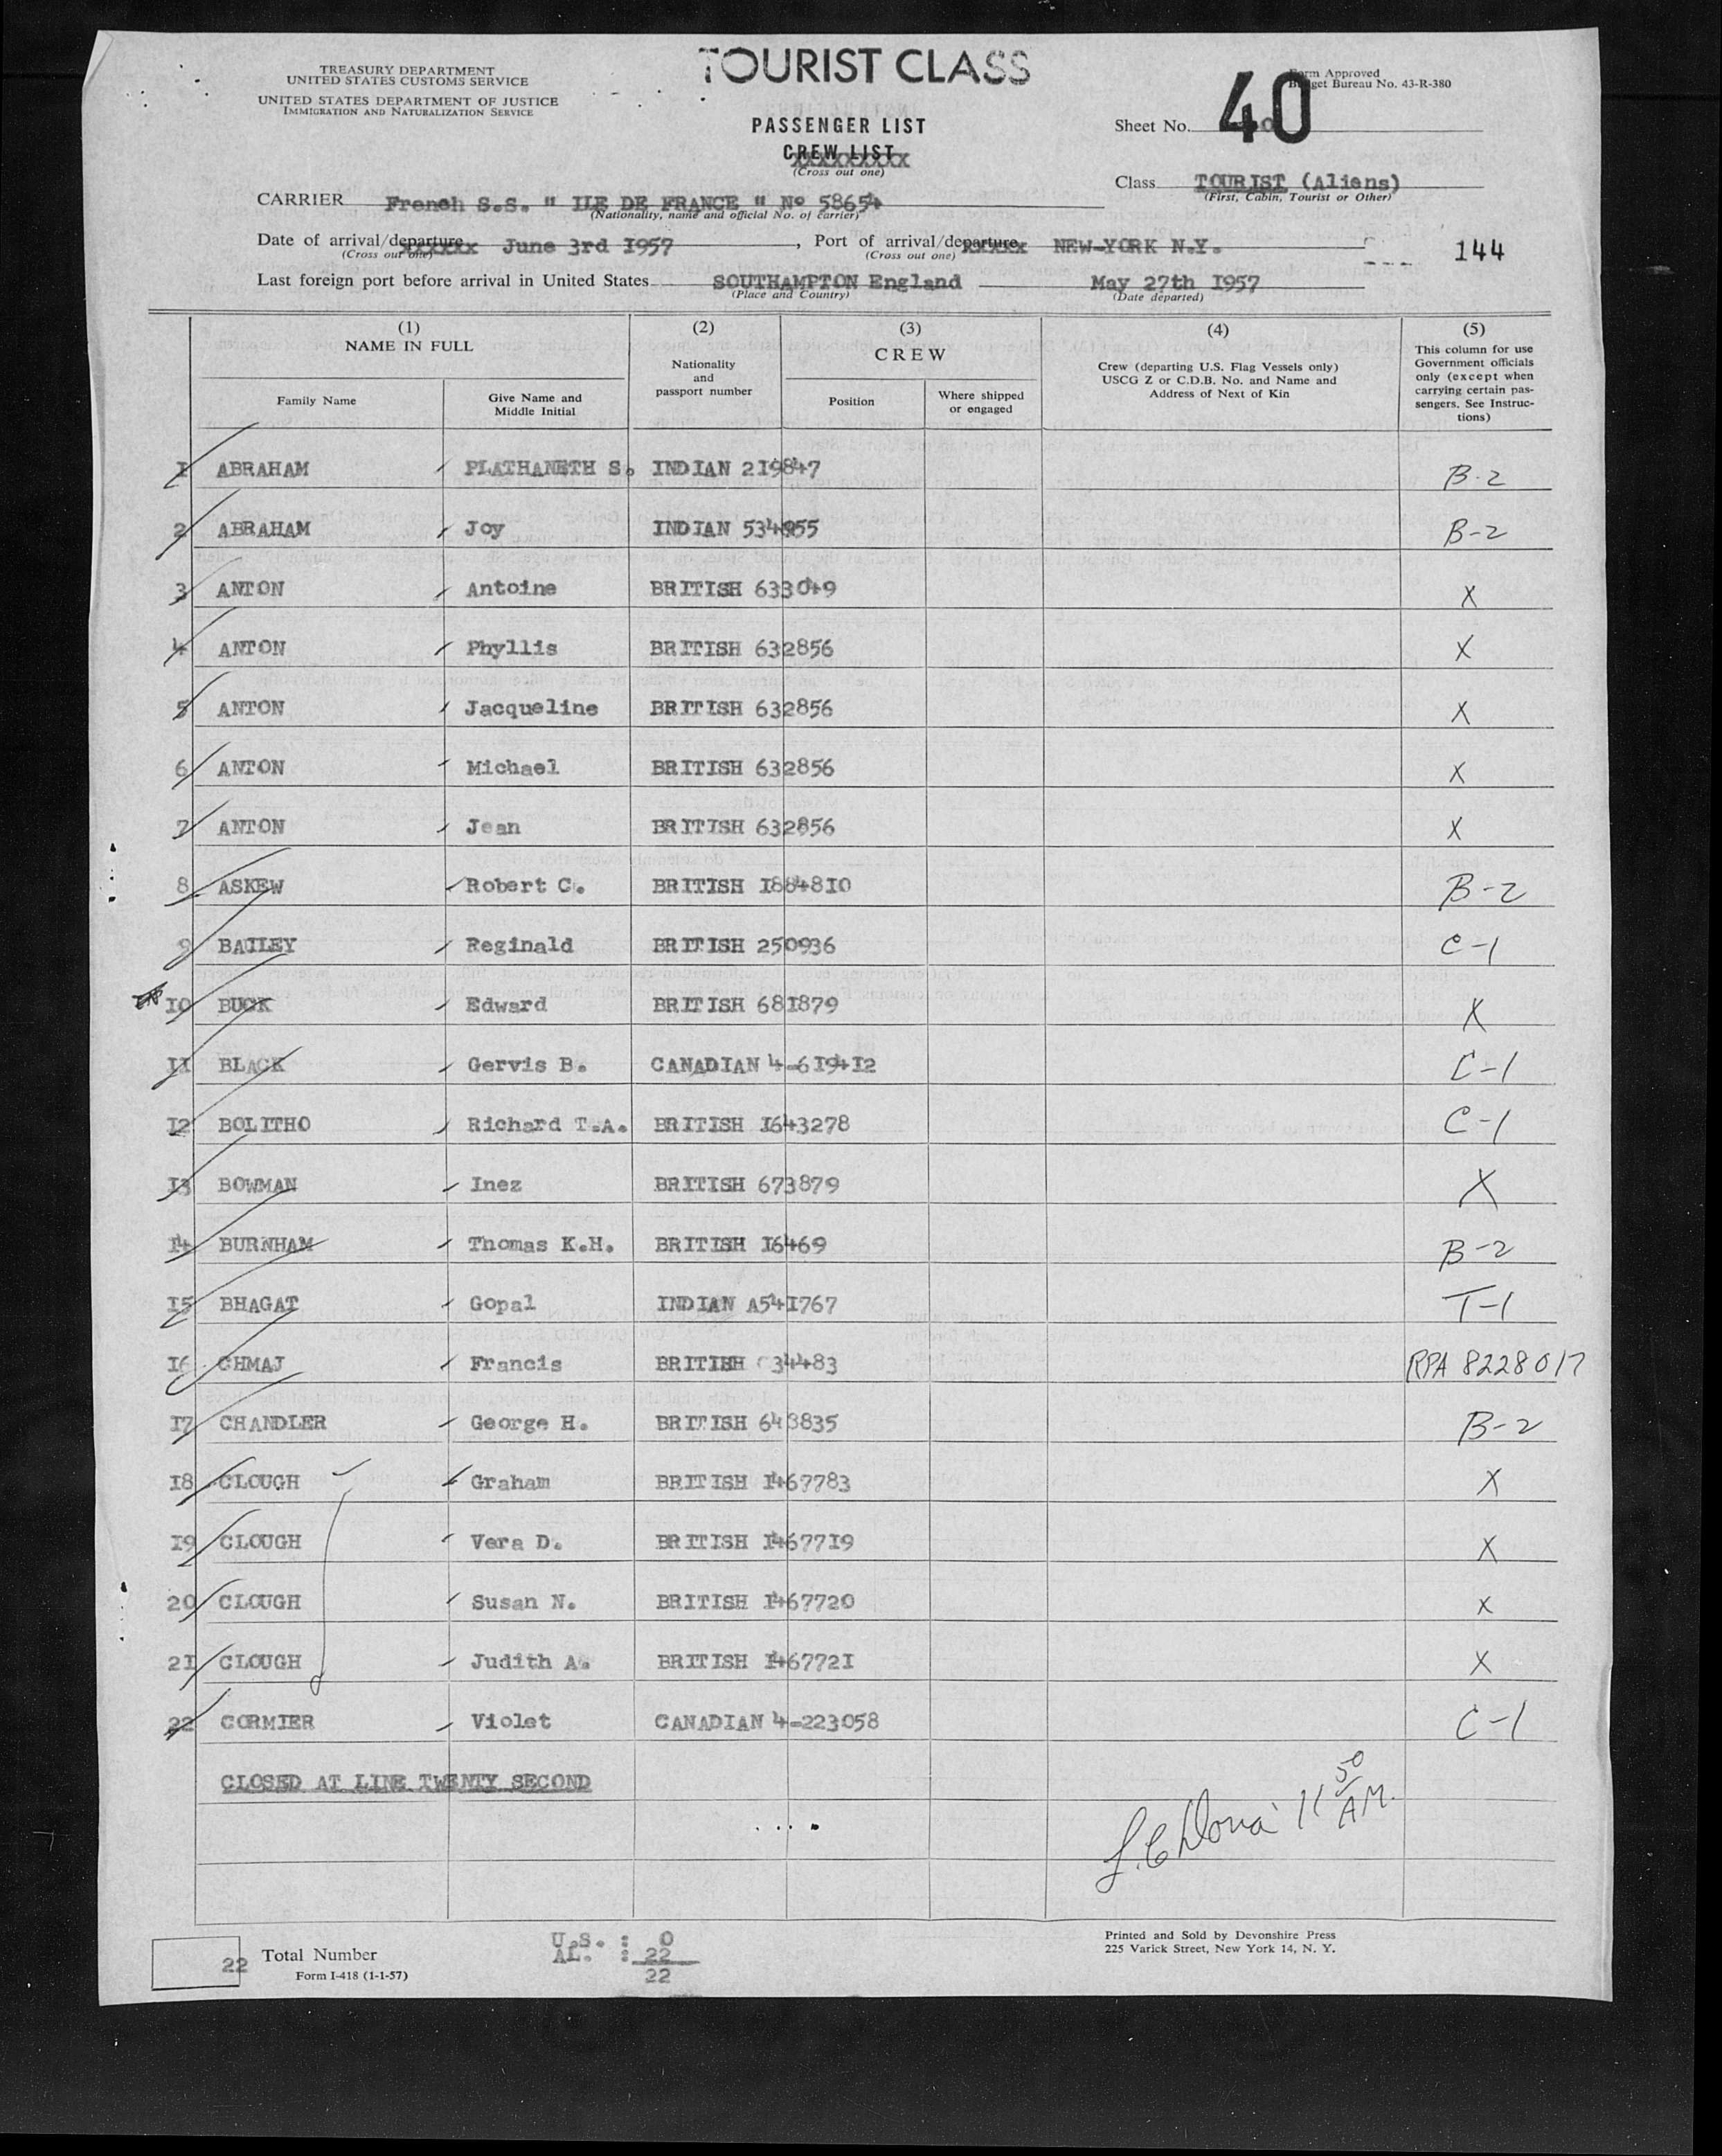 TOURIST CLASS
TREASURY DEPARTMENT
UNITED STATES CUSTOMS SERVICE
UNITED STATES DEPARTMENT OF JUSTICE
IMMIGRATION AND NATURALIZATION SERVICE
Form Approved
Budget Bureau No. 43-R-380
40
PASSENGER LIST
CREW LIST
(Cross out one)
Sheet No.
Class TOURIST (Aliens)
(First, Cabin, Tourist or Other)
CARRIER French S.S. " ILE DE FRANCE " No 58654
(Nationality, name and official No. of carrier)
Date of arrival/departure June 3rd 1957, Port of arrival/departure NEW-YORK N.Y. 144
(Cross out one) (Cross out one)
Last foreign port before arrival in United States SOUTHAMPTON England May 27th 1957
(Place and Country) (Date departed)
(1) NAME IN FULL
Family Name
Give Name and Middle Initial
(2)
Nationality and passport number
(3) CREW
Position
Where shipped or engaged
(4)
Crew (departing U.S. Flag Vessels only)
USCG Z or C.D.B. No. and Name and
Address of Next of Kin
(5)
This column for use
Government officials
only (except when
carrying certain pas-
sengers. See Instruc-
tions)
1 ABRAHAM PLATHANETH S. INDIAN 219847 B-2
2 ABRAHAM Joy INDIAN 534955 B-2
3 ANTON Antoine BRITISH 633049 X
4 ANTON Phyllis BRITISH 632856 X
5 ANTON Jacqueline BRITISH 632856 X
6 ANTON Michael BRITISH 632856 X
7 ANTON Jean BRITISH 632856 X
8 ASKEW Robert C. BRITISH 1884810 B-2
9 BAILEY Reginald BRITISH 250936 C-1
10 BUCK Edward BRITISH 681879 X
11 BLACK Gervis B. CANADIAN 4-619412 C-1
12 BOLITHO Richard T.A. BRITISH 1643278 C-1
13 BOWMAN Inez BRITISH 673879 X
14 BURNHAM Thomas K.H. BRITISH 16469 B-2
15 BHAGAT Gopal INDIAN A541767 T-1
16 CHMAJ Francis BRITISH 34483 RPA 8228017
17 CHANDLER George H. BRITISH 648835 B-2
18 CLOUGH Graham BRITISH 1467783 X
19 CLOUGH Vera D. BRITISH 1467719 X
20 CLOUGH Susan N. BRITISH 1467720 X
21 CLOUGH Judith A. BRITISH 1467721 X
22 CORMIER Violet CANADIAN 4-223058 C-1
CLOSED AT LINE TWENTY SECOND
11 50 AM.
22 Total Number
Form I-418 (1-1-57)
U.S. : 0
AL. : 22
22
Printed and Sold by Devonshire Press
225 Varick Street, New York 14, N. Y.